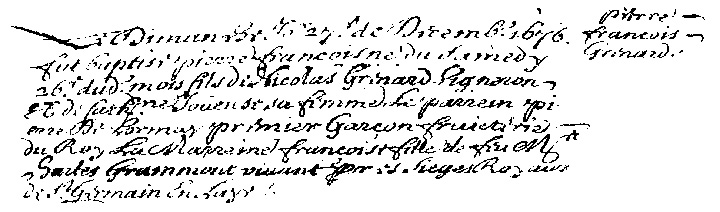 Le Dimanche 27.e de Decemb.e 1676.
fut baptisé pierre francois né du Samedy
26.e dud.t mois fils de Nicolas Grenard Vigneron
Et de Cath.ne sa femme. Le parrein pi
erre De Lormoy premier Garçon fruictérie
du Roy La Mareine francoise fille de feu M.re
Charles Grammont vivant pres Sieges Royaux
de S.t Germain En Laye.
pierre
francois
Grenard.